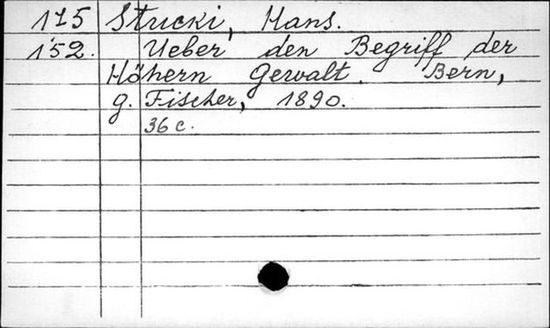 175 Stucki, Hans.
152. Ueber den Begriff der
Höhern Gewalt. Bern,
g. Fischer, 1890.
36 c.